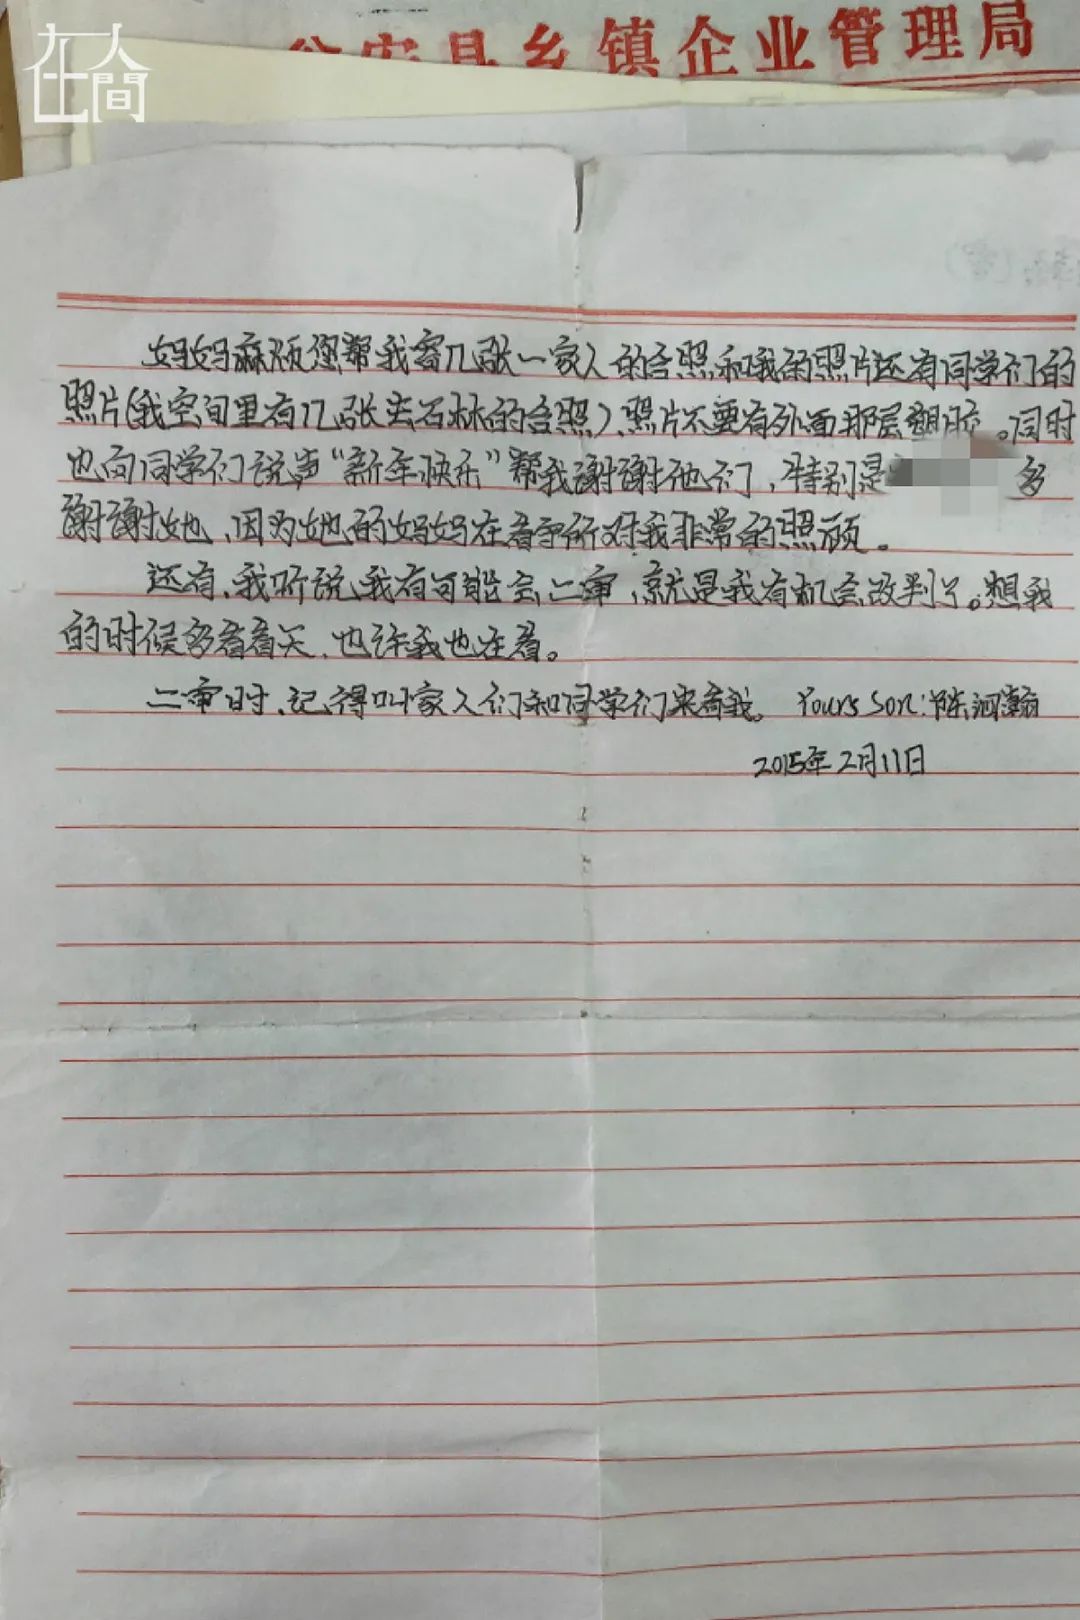 在人間
公安县乡镇企业管理局
妈妈麻烦您帮我寄几张一家人的合照和我的照片还有同学们的
照片(我空间里有几张去石林的合照)、照片不要有外面那层塑胶。同时
也向同学们说声“新年快乐”帮我谢谢他们，特别是 多
谢谢她、因为她的妈妈在看守所对我非常的照顾。
还有、我听说我有可能会二审，就是我有机会改判了。想我
的时候多看看天、也许我也在看。
二审时、记得叫家人们和同学们来看我。 Yours Son:陈泗瀚
2015年2月11日